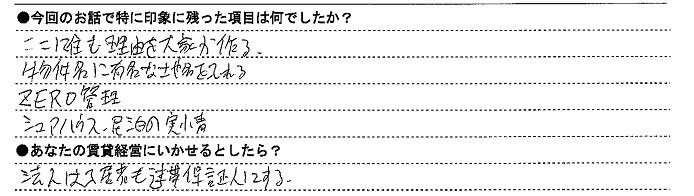 ●今回のお話で特に印象に残った項目は何でしたか？
ここに住む理由を大家が作る。
物件名に有名な土地名を入れる
ZERO管理
シェアハウス、民泊の実情
●あなたの賃貸経営にいかせるとしたら？
法人は入居者も連帯保証人にする。